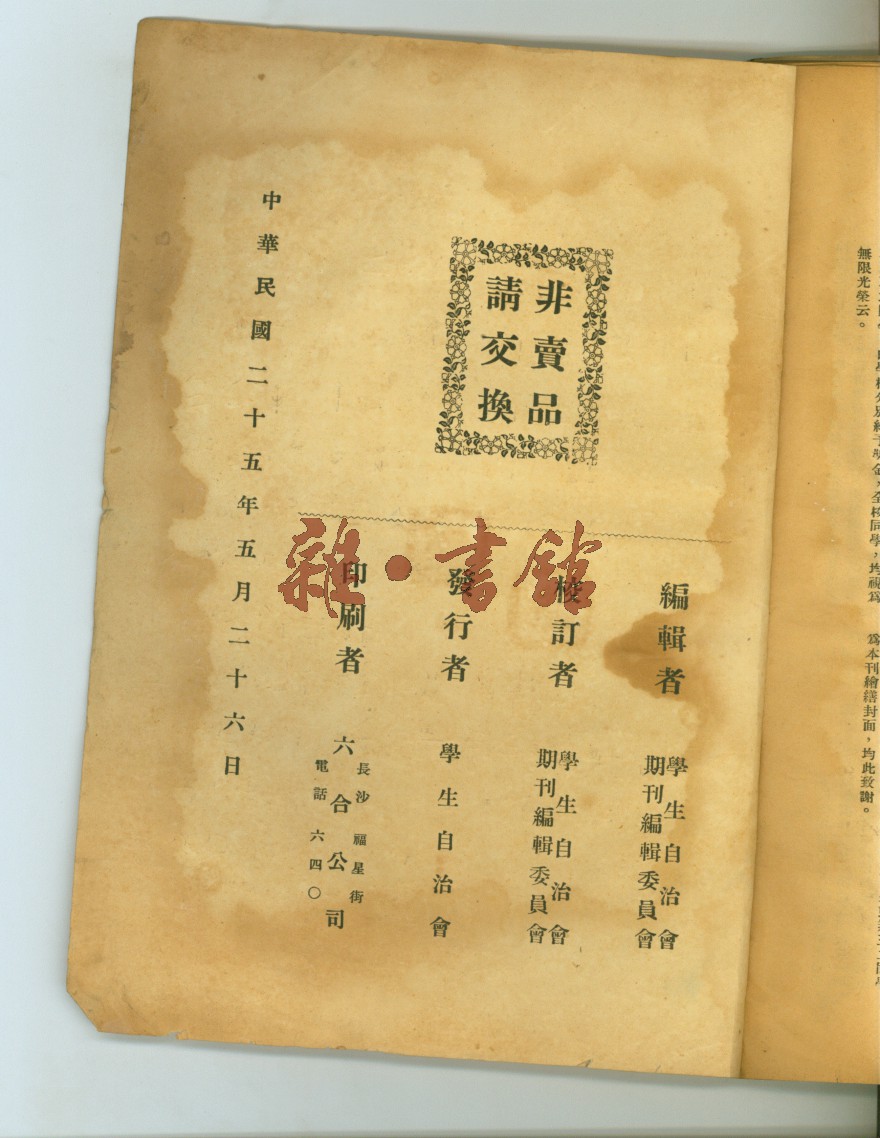 無限光榮云。
爲本刊繪繕封面，均此致謝。
非賣品
請交換
編輯者
學生自治會
期刊編輯委員會
校訂者
學生自治會
期刊編輯委員會
發行者
學生自治會
印刷者
長沙福星街
六合公司
電話六四〇
中華民國二十五年五月二十六日
雜·書館